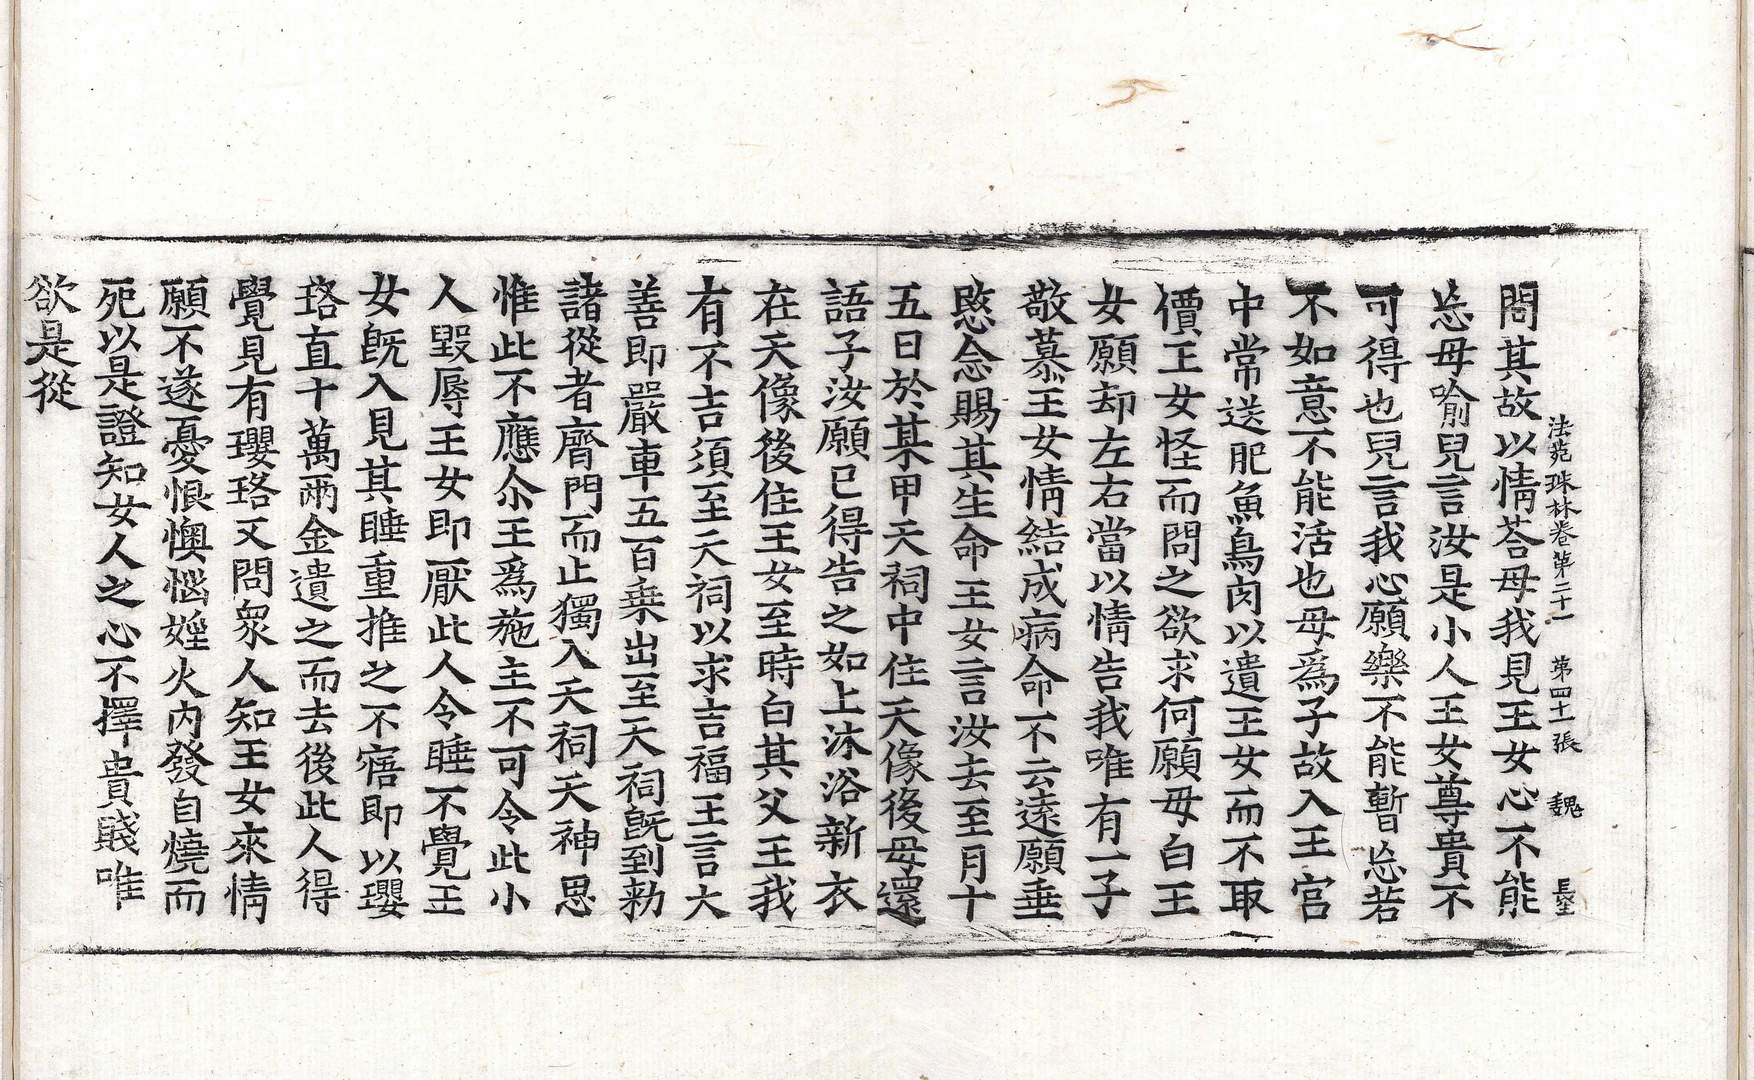 法苑珠林卷第二十一 第四十一張 魏 長堅
問其故以情荅母我見王女心不能
忘母喻兒言汝是小人王女尊貴不
可得也兒言我心願樂不能暫忘若
不如意不能活也母爲子故入王宫
中常送肥魚鳥肉以遺王女而不取
價王女怪而問之欲求何願母白王
女願却左右當以情告我唯有一子
敬慕王女情結成病命不云遠願垂
愍念賜其生命王女言汝去至月十
五日於某甲天祠中住天像後母還
語子汝願已得告之如上沐浴新衣
在天像後住王女至時白其父王我
有不吉須至天祠以求吉福王言大
善即嚴車五百乗出至天祠旣到勑
諸從者齊門而止獨入天祠天神思
惟此不應尒王爲施主不可令此小
人毀辱王女即厭此人令睡不覺王
女旣入見其睡重推之不寤即以瓔
珞直十萬兩金遺之而去後此人得
覺見有瓔珞又問衆人知王女來情
願不遂憂恨懊惱婬火内發自燒而
死以是證知女人之心不擇貴賤唯
欲是從